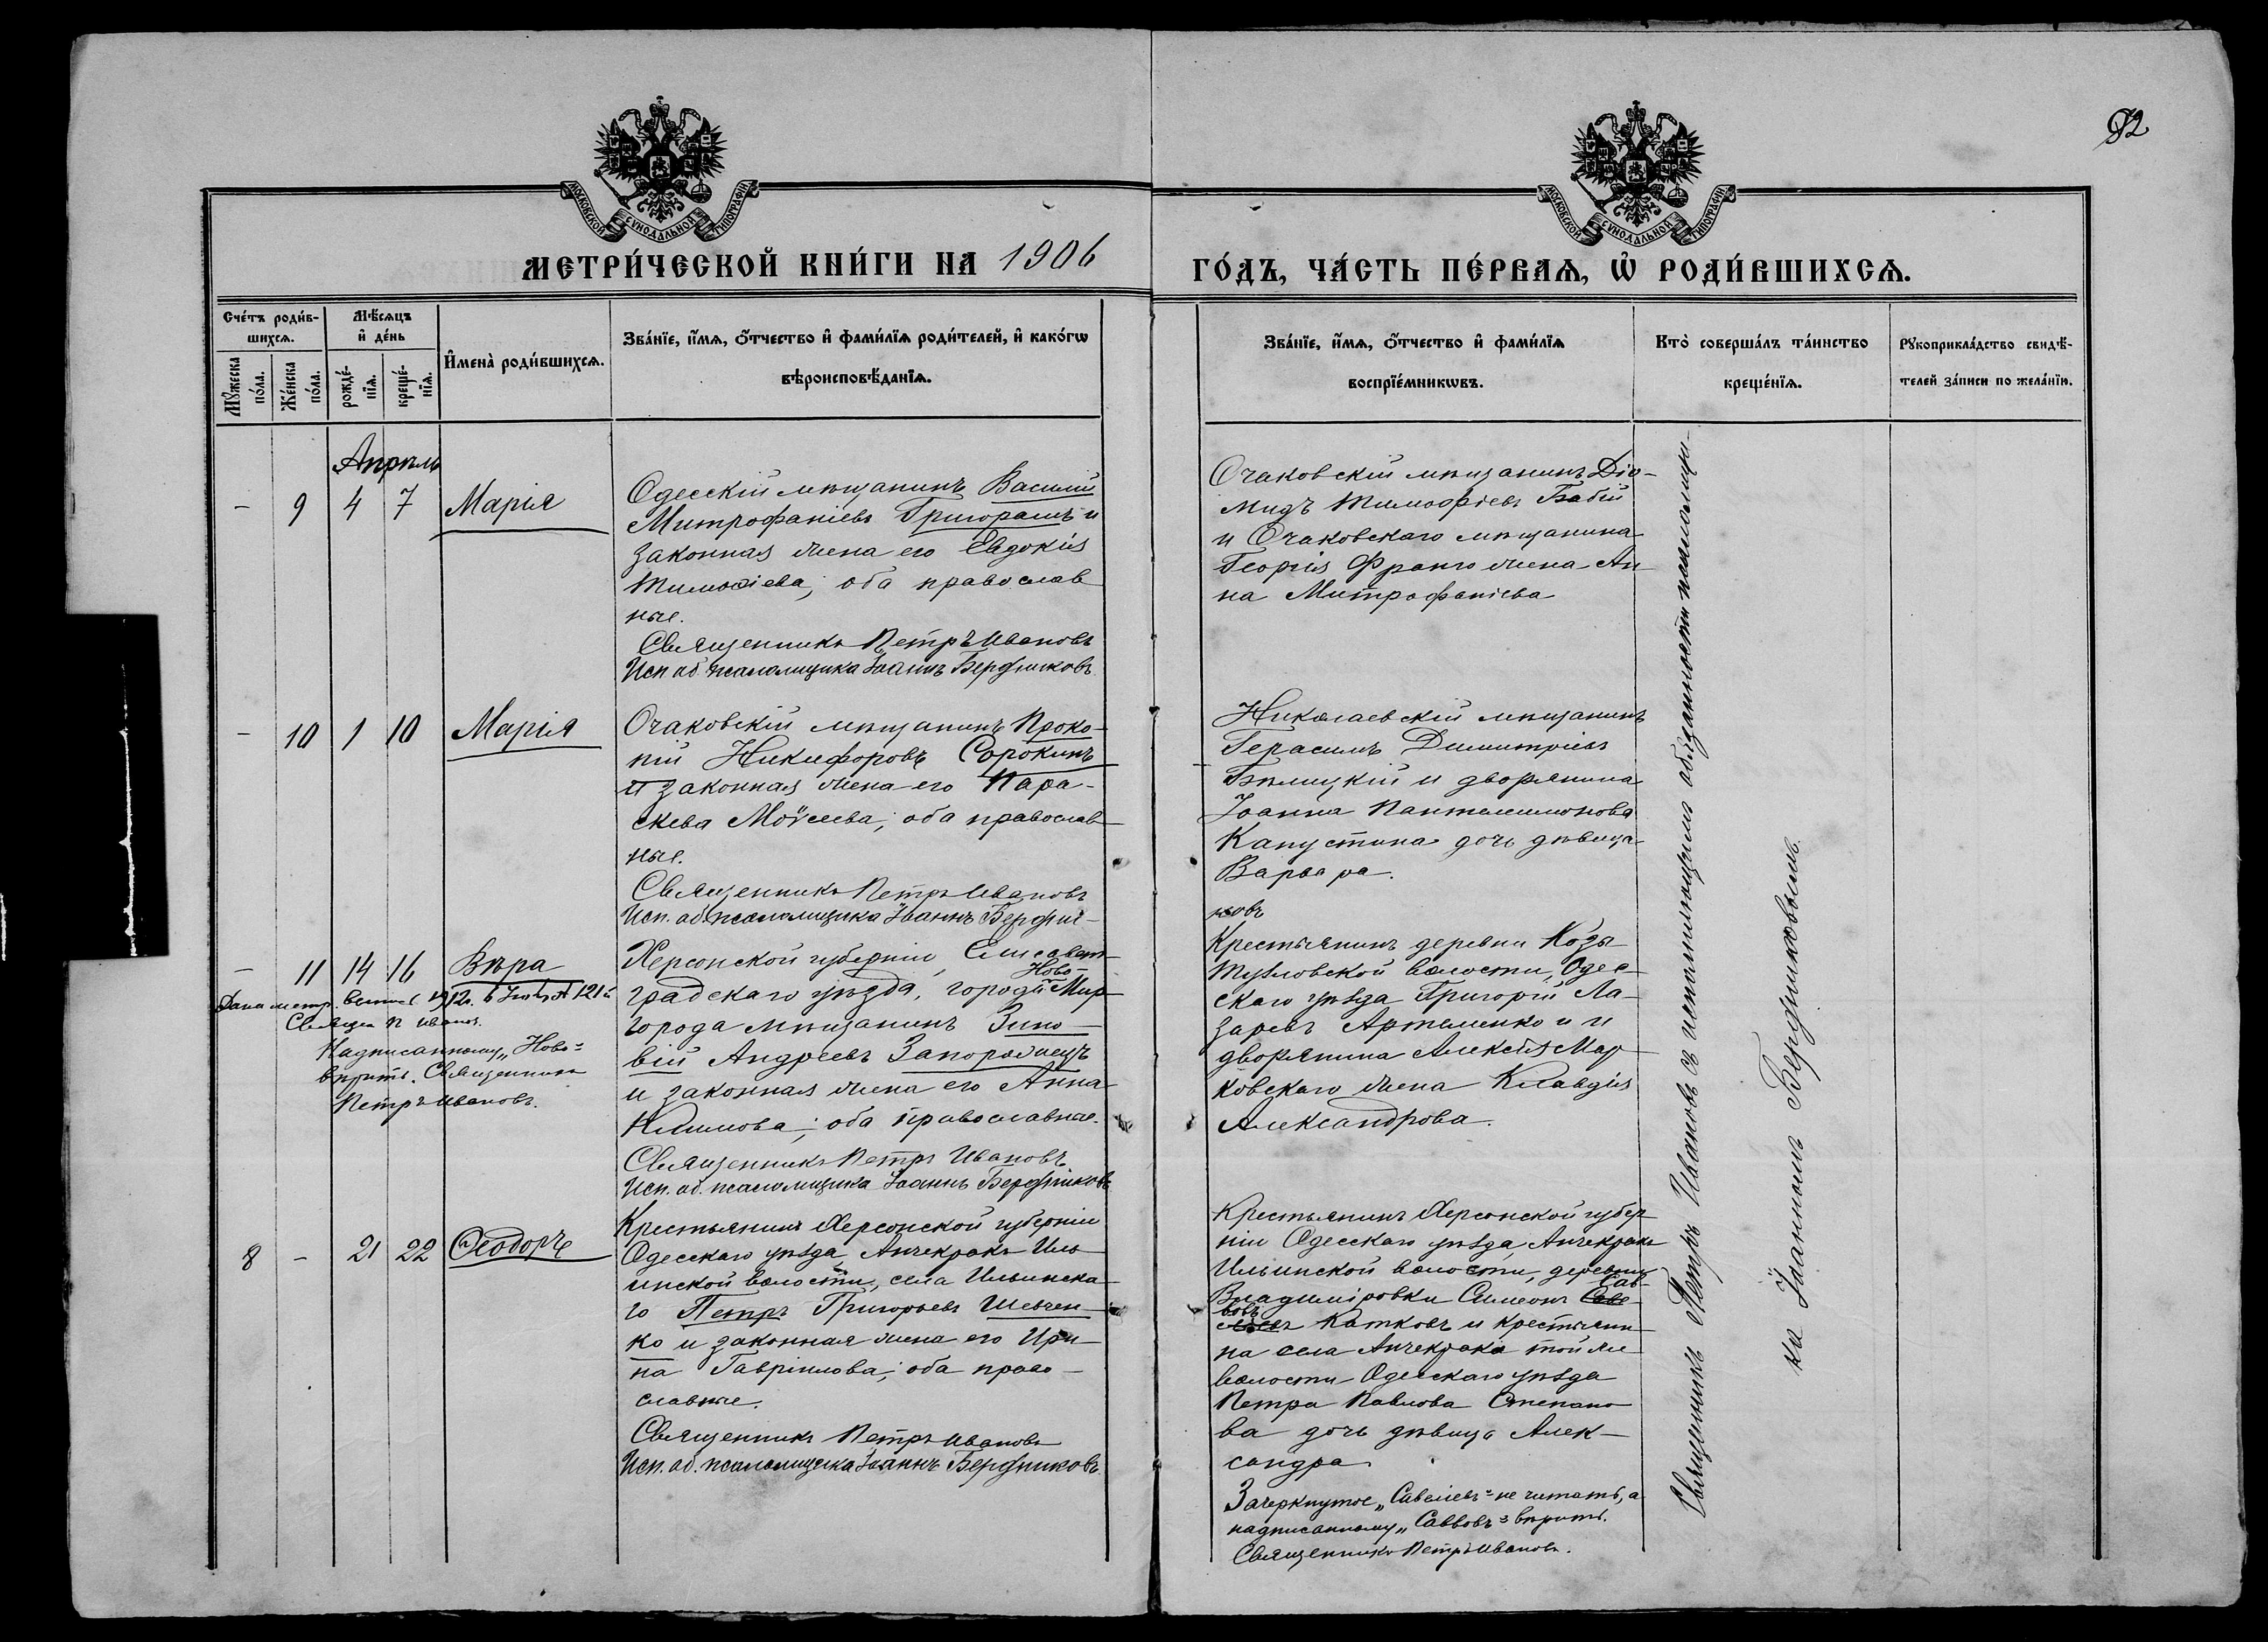 92
МОСКОВСКОЙ СѴНОДАЛЬНОЙ ТИПОГРАФІИ
МОСКОВСКОЙ СѴНОДАЛЬНОЙ ТИПОГРАФІИ
МЕТРИ́ЧЕСКОЙ КНИ́ГИ НА 1906
ГО́ДЪ, ЧА́СТЬ ПЕ́РВАѦ, Ѡ҆ РОДИ́ВШИХСѦ.
Сче́тъ роди́в-
шихсѧ.
Мꙋ́жеска по́ла.
Же́нска по́ла.
Мѣ́сѧцъ
и҆ де́нь
рожде́-
нїѧ.
креще́-
нїѧ.
И҆мена̀ роди́вшихсѧ.
Зва́нїе, и҆́мѧ, ѻ҆́тчество и҆ фами́лїѧ роди́телей, и҆ како́гѡ
вѣроисповѣ́данїѧ.
Зва́нїе, и҆́мѧ, ѻ҆́тчество и҆ фами́лїѧ
воспрїе́мникѡвъ.
Кто̀ соверша́лъ та́инство
креще́нїѧ.
Рꙋкоприкла́дство свидѣ́-
телей за́писи по жела́нїю.
Апрѣль
- 9 4 7 Марія
Одесскій мѣщанинъ Василій
Митрофаніевъ Григорашъ и
законная жена его Евдокія
Тимоѳіева; оба православ
ные.
Священникъ Петръ Ивановъ
Исп. об. псаломщика Іоаннъ Бердниковъ
Очаковскій мѣщанинъ Діо-
мидъ Тимофіевъ Бабій
и Очаковскаго мѣщанина
Георгія Франго жена Ан
на Митрофаніева
- 10 1 10 Марія
Очаковскій мѣщанинъ Проко-
пій Никифоровъ Сорокинъ
и законная жена его Пара-
скева Моѵсеева; оба православ
ные.
Священникъ Петръ Ивановъ
Исп. об. псаломщика Іоаннъ Бердни-
Николаевскій мѣщанинъ
Герасимъ Димитріевъ
Бѣлицкій и дворянина
Іоанна Пантелеимонова
Капустина дочь дѣвица
Варвара.
ковъ
- 11 14 16 Вѣра
Дана метр. выпись 1912г. 6 № 121й
Священ П Иванов.
Надписанному „Ново=
вѣрить. Священникъ
Петръ Ивановъ.
Херсонской губерніи, Елисавет
Ново-
градскаго уѣзда, города Мир
города мѣщанинъ Зино-
вій Андреевъ Запорожецъ
и законная жена его Анна
Климова; оба православные.
Священникъ Петръ Ивановъ
Исп. об. псаломщика Іоаннъ Бердниковъ
Крестьянинъ деревни Козы
Тузловской волости, Одес-
скаго уѣзда Григорій Ла-
заревъ Артеменко и
дворянина Алексѣя Мар
ковскаго жена Клавдія
Александрова.
8 - 21 22 Ѳеодоръ
Крестьянинъ Херсонской губерніи
Одесскаго уѣзда, Анчекракъ Иль
инской волости, села Ильинска
го Петръ Григорьевъ Шевчен-
ко и законная жена его Ири-
на Гавріилова; оба право-
славные.
Священникъ Петръ Ивановъ
Исп. об. псаломщика Іоаннъ Бердниковъ
Крестьянинъ Херсонской губер
ніи Одесскаго уѣзда, Анчекракъ
Ильинской волости, деревни
Сав-
Владиміровки Симеонъ Саве-
вовъ
ліевъ Катковъ и крестьяни
на села Анчекрака той же
волости Одесскаго уѣзда
Петра Павлова Степано
ва дочь дѣвица Алек-
сандра
Зачеркнутое „Савеліевъ" не читать, а
надписанному „Саввовъ" вѣрить.
Священникъ Петръ Ивановъ.
Священникъ Петръ Ивановъ съ исполняющимъ обязанности псаломщи-
ка Іоанномъ Бердниковымъ.